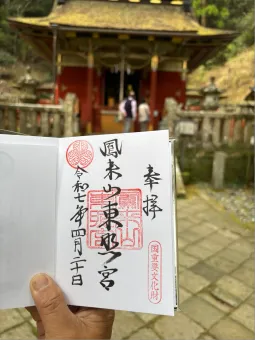 奉拝
鳳来山東照宮
国重要文化財
令和七年四月二十日